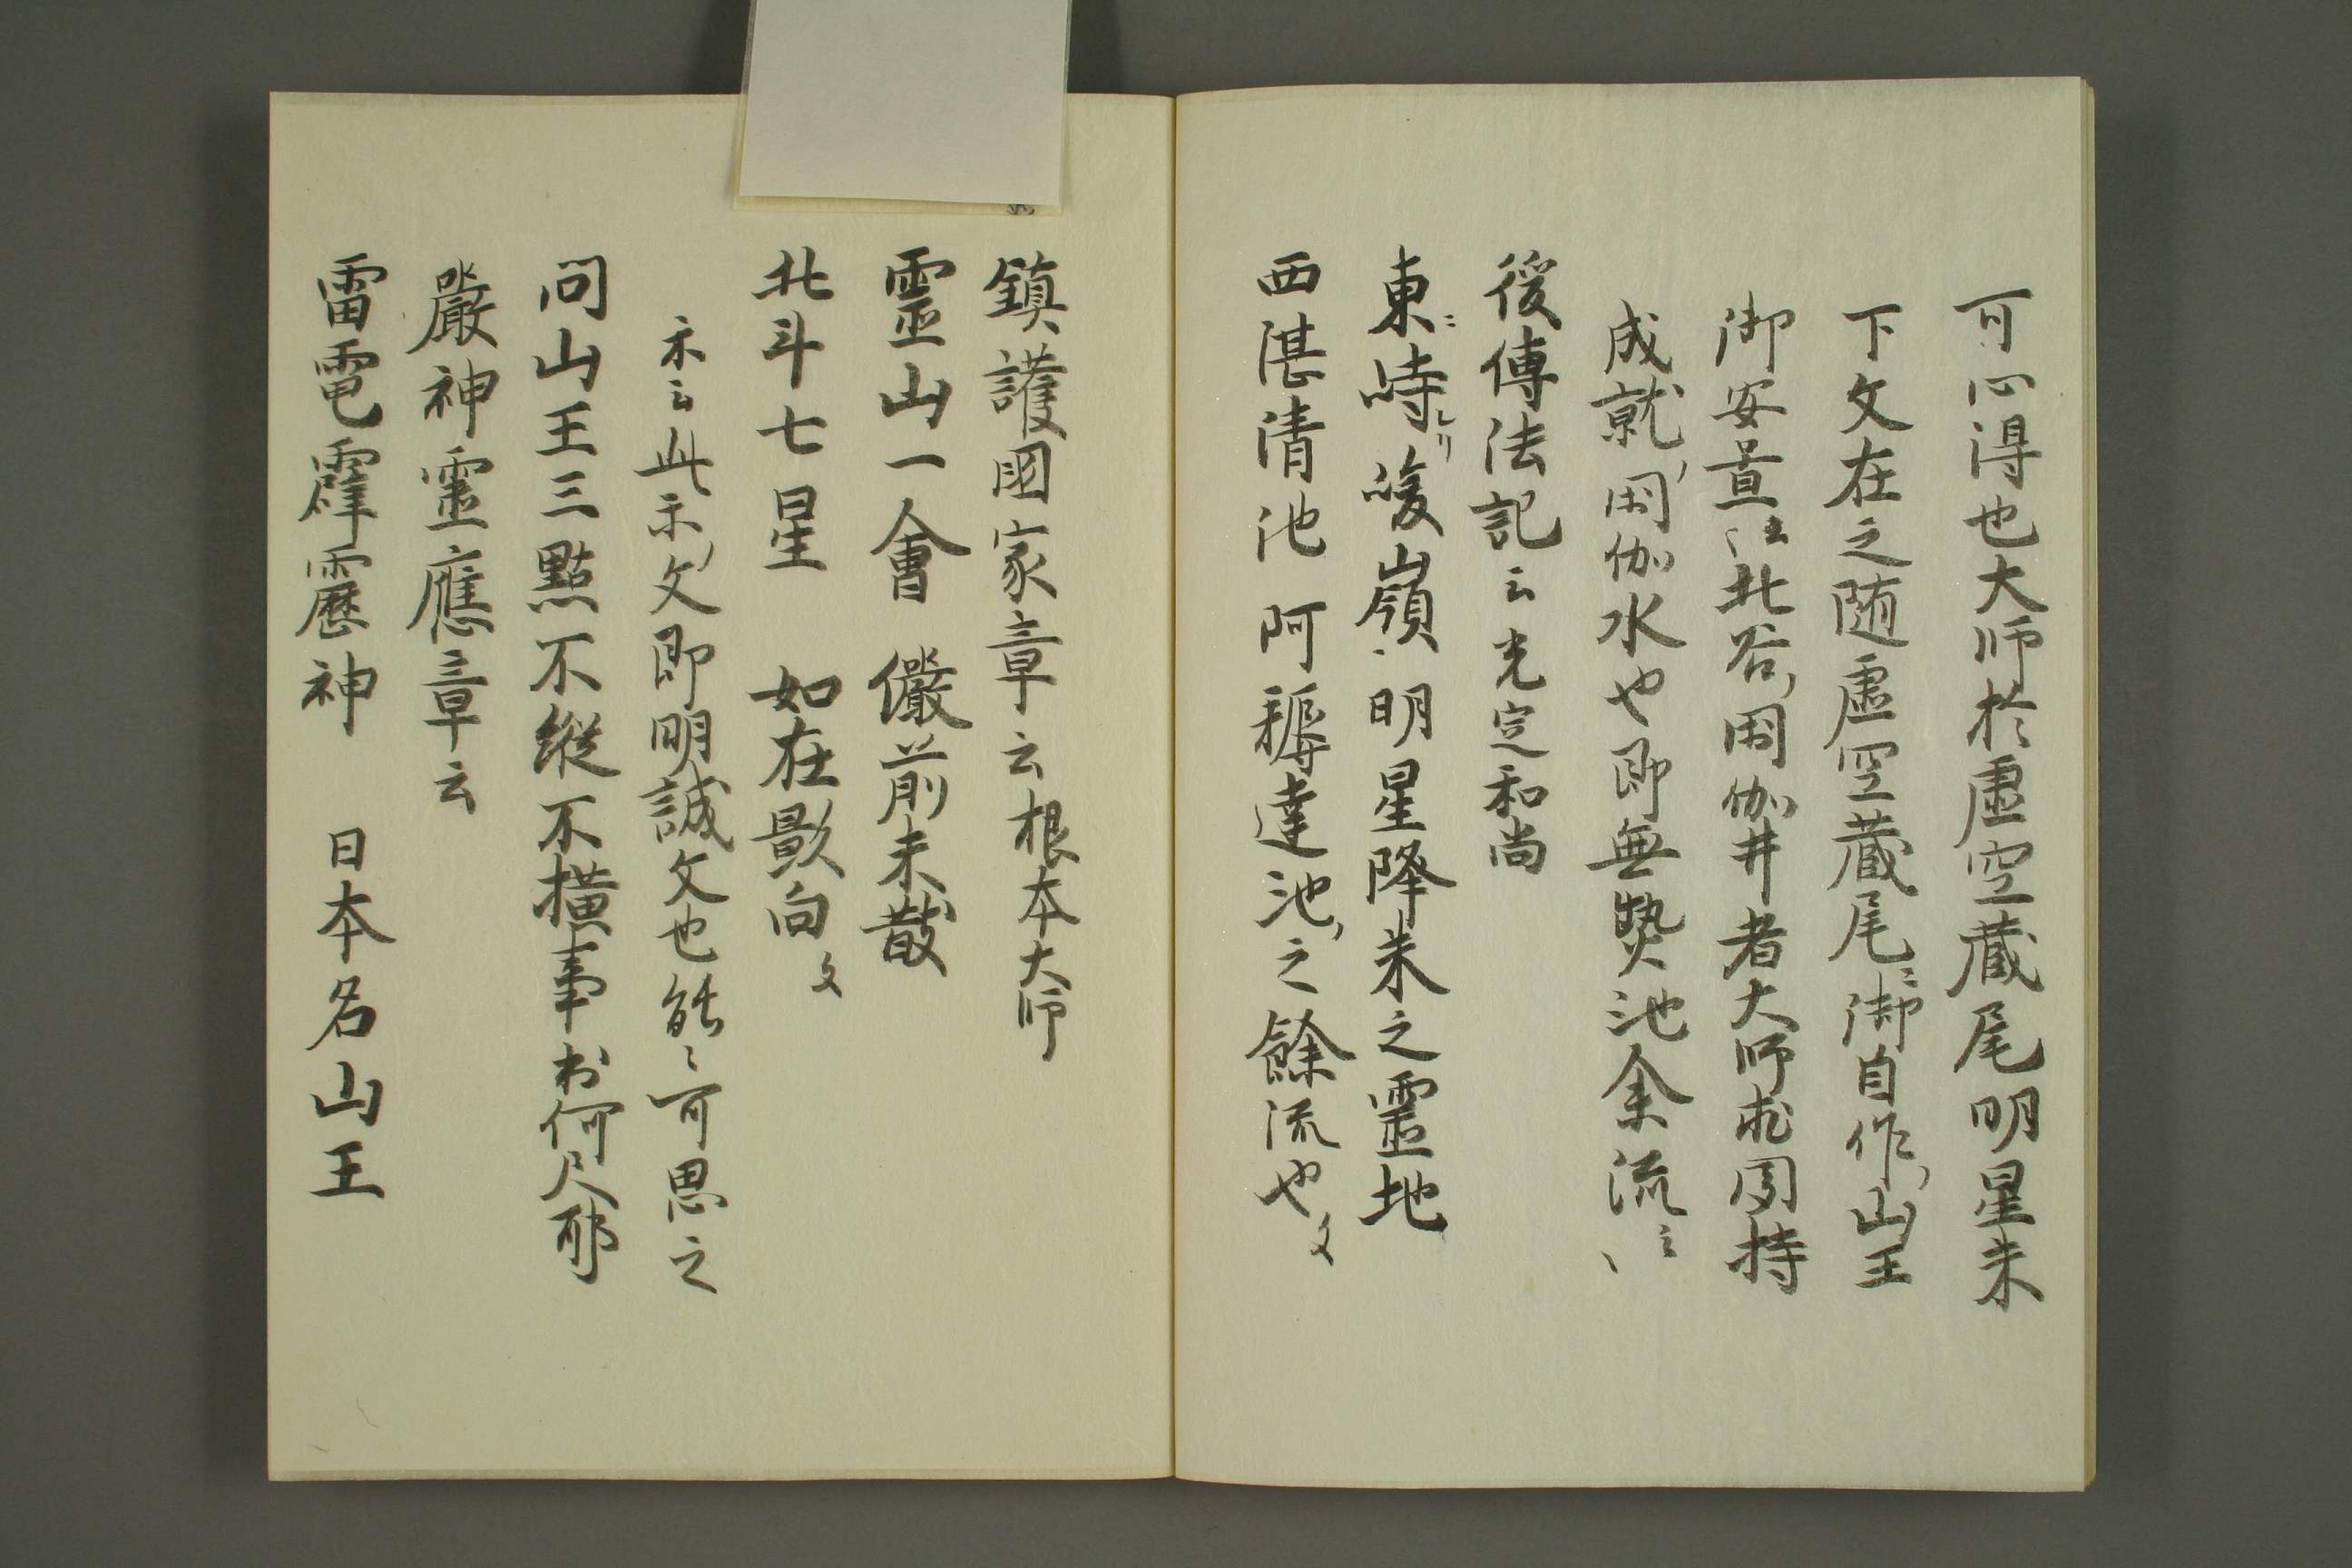 可心得也大师於虚空蔵尾明星来
下文在之随虚空蔵尾ニ御自作ノ山王
御安置江北谷ノ閼伽井者大师求聞持
成就ノ閼伽水也即無熱池余流云〻
後傳法記云光定和尚
東ニ峙シリ峻嶺明星降来之靈地
西湛清池阿耨達池ノ之餘流也文
鎮護國家章云根本大师
靈山一會 儼前未散
北斗七星 如在影向文
示云此示ノ文即明誠文也能〻可思之
問山王三點不縱不横事書何尺耶
嚴神靈應章云
雷電霹靂神 日本名山王